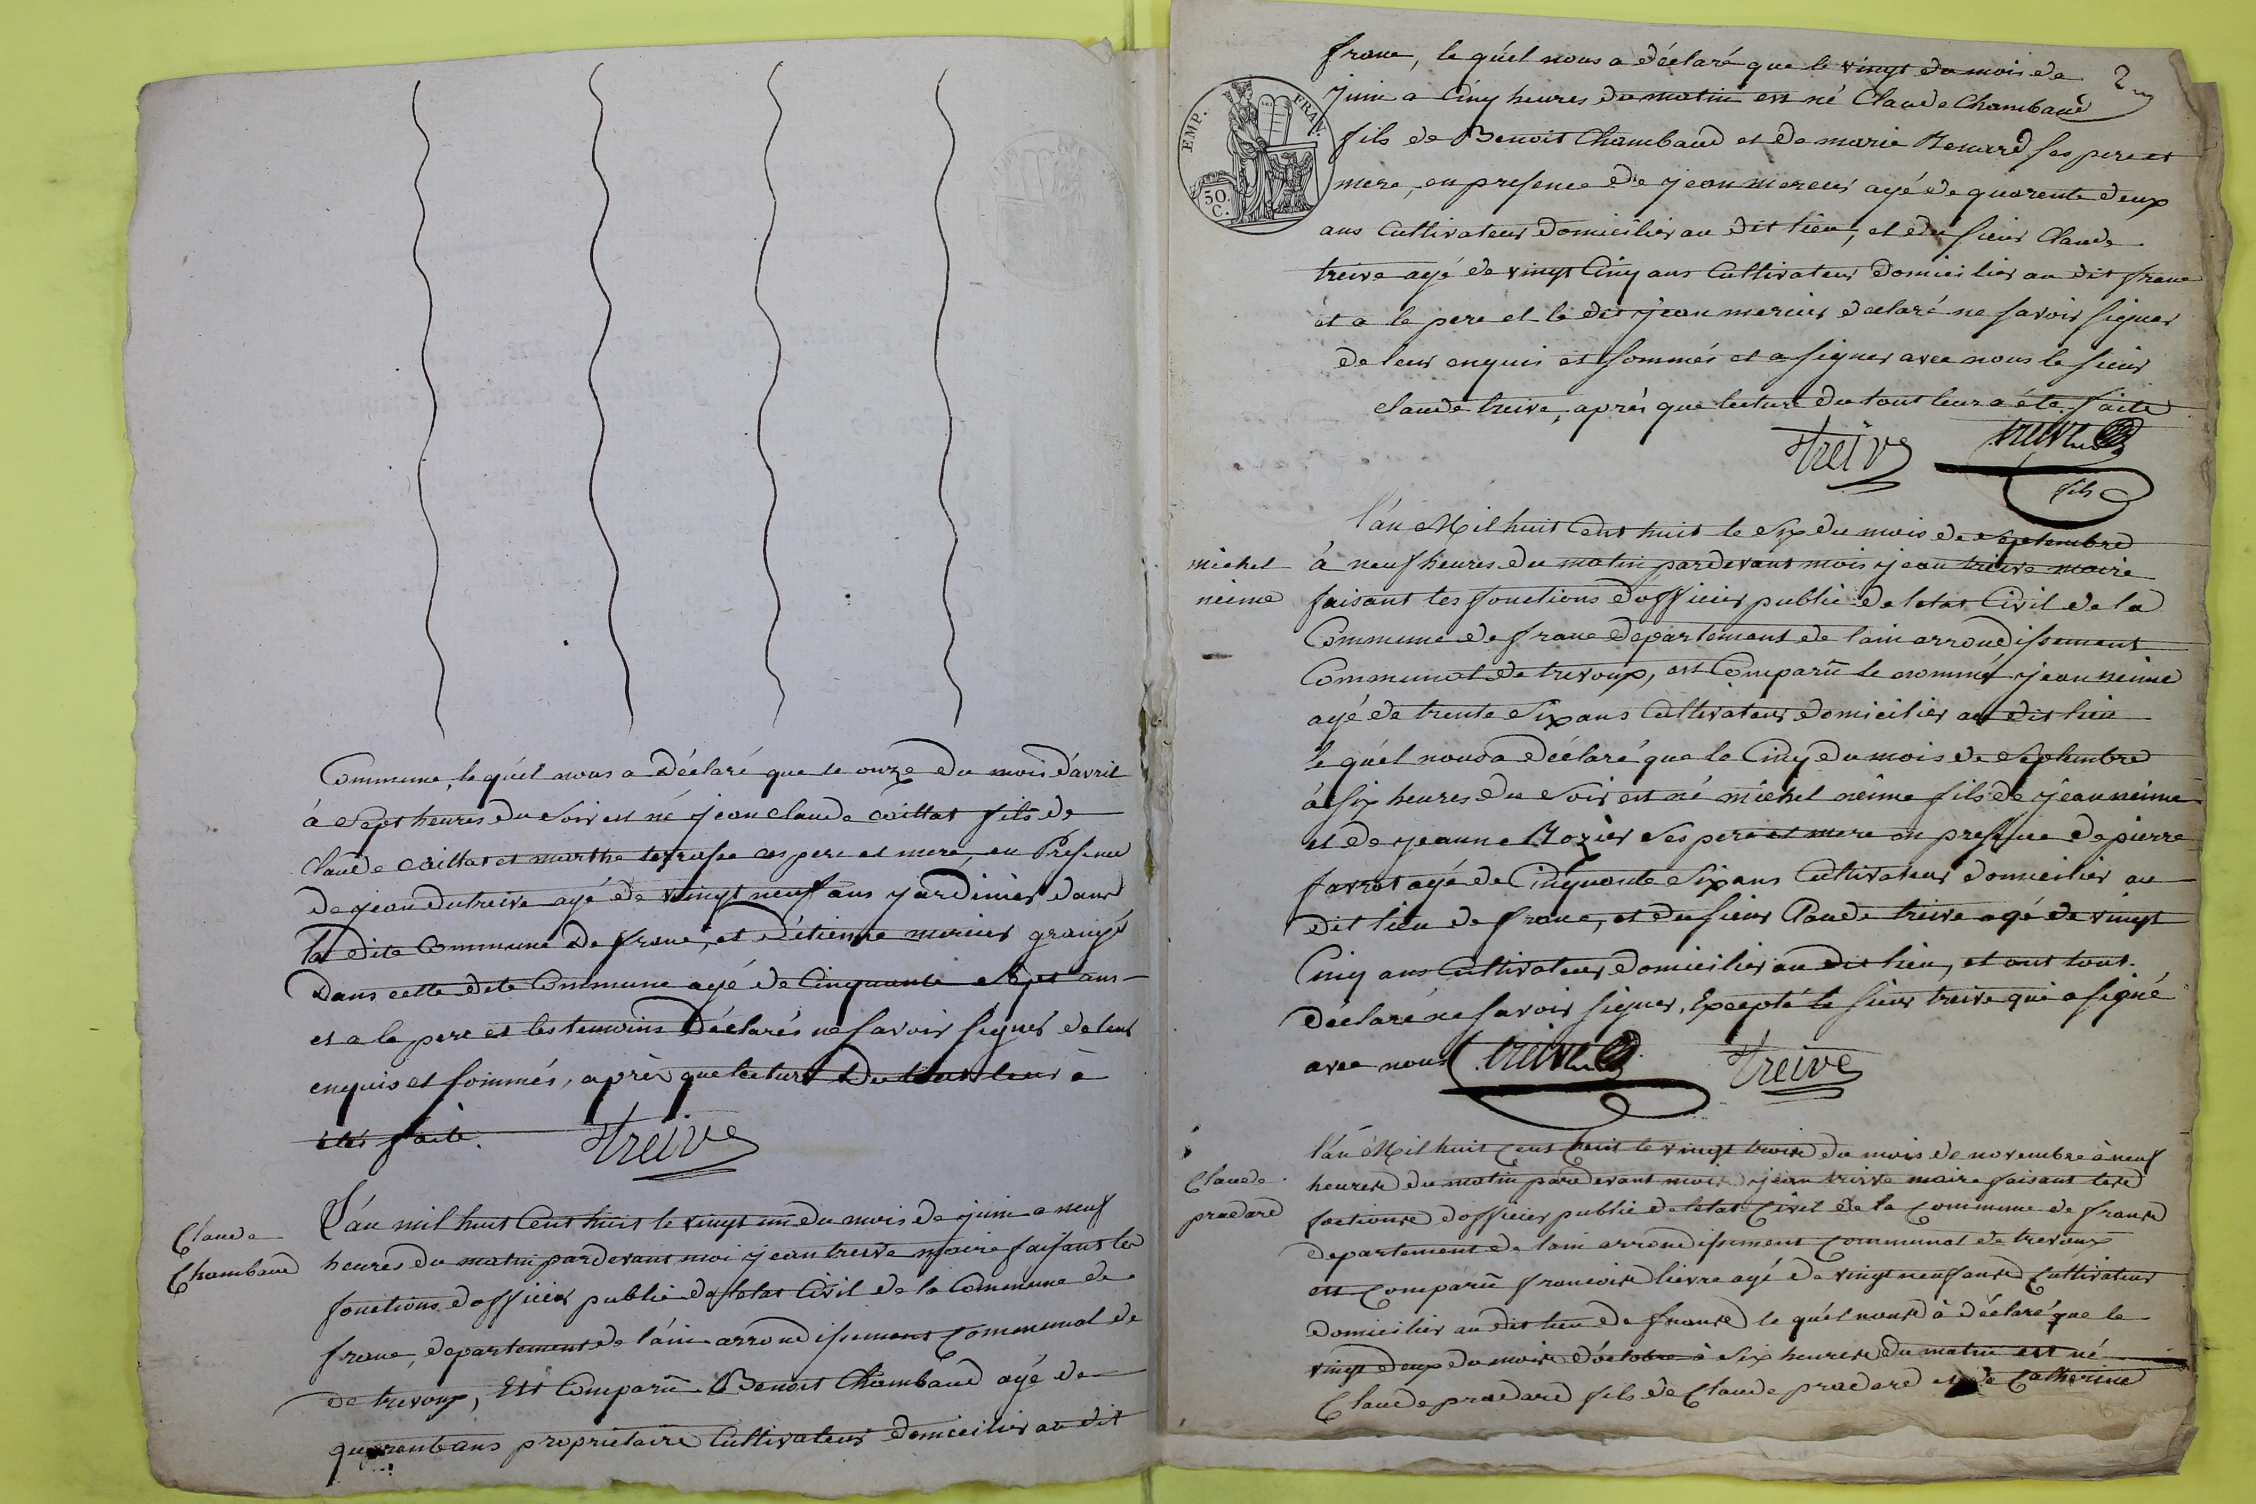 Commune, le quél nous a Déclaré que le onze du mois d'avril
à Sept heures du Soir est né jean claude caillat fils de
Claude Caillat et marthe ses pere et mere, en Presence
de jean dutreive agé de vingt neuf ans jardinier dans
la dite Commune de frane, et d'étienne mercier grangé
Dans cette dite Commune agé de Cinquante Sept ans
et a le pere et les temoins Déclarés ne savoir signer de leur
enquis et sommés, après que lecture Du tout leur à
étés faite.
Treive
Claude
Chambaud
L'án mil huit Cent huit le vingt un du mois de juin a neuf
heures du matin pardevant moi jean treive maire faisant les
fonctions d'officier public de l'etat Civil de la Commune de
frane, departement de l'ain arrondissement Communal de
de trevoux, Est Comparu Benoit Chambaud agé de
quarante ans propriétaire Cultivateur domicilier au dit
2
EMP. FRAN.
50. C.
frane, le quél nous a déclaré que le vingt du mois de
juin a Cinq heures du matin est né Claude Chambaud
fils de Benoit Chambaud et de marie Renard ses pere et
mere, en presence de jean mercier agé de quarente deux
ans Cultivateur domicilier au dit lieu, et du sieur Claude
treive agé de vingt Cinq ans Cultivateur domicilier au dit frane
et a le pere et le dit jean mercier declaré ne savoir signer
de leur enquis et sommés et a signer avec nous le sieur
claude treive, après que lecture du tout leur a été faite
Treive treive
fils
michel
neime
l'án Mil huit Cent huit le Six du mois de Septembre
à neuf heures du matin pardevant mois jean treive maire
faisant les fonctions d'officier public de l'etat Civil de la
Commune de frane departement de l'ain arrondissement
Communal de trevoux, est Comparu le nommé jean neime
agé de trente Six ans Cultivateur domicilier au dit lieu
le quél nous a déclaré que le Cinq du mois de Septembre
à six heures du Soir est né michel neime fils de jean neime
et de jeanne Rozier Ses pere et mere en presence de pierre
favrot agé de Cinquante Six ans Cultivateur domicilier au
dit lieu de frane, et du sieur Claude treive agé de vingt
Cinq ans Cultivateur domicilier au dit lieu, et ont tout
déclaré ne savoir signer, Excepté le sieur treive qui a signé
avec nous treive Treive
Claude
pradard
l'án Mil huit Cent huit le vingt trois du mois de novembre à neuf
heures du matin pardevant mois jean treive maire faisant les
foctions d'officier public de l'etat Civil de la Commune de frans
departement de l'ain arrondissement Communal de trevoux
est Comparu francois lievre agé de vingt neuf ans Cultivateur
domicilier au dit lieu de frans le quél nous à déclaré que le
vingt deux du mois d'octobre à Six heures du matin est né
Claude pradard fils de Claude pradard et de Catherine